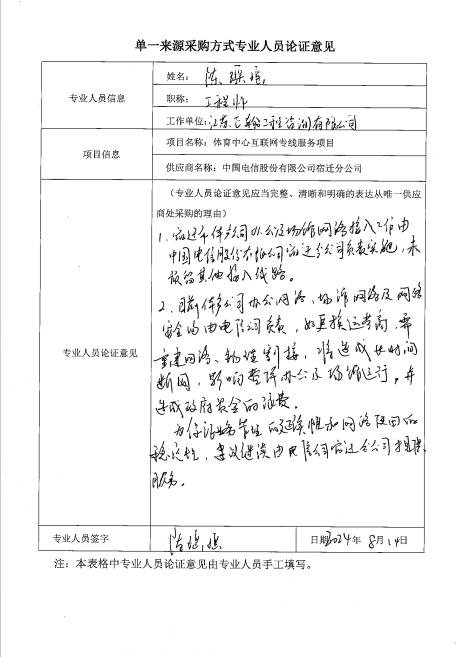 单一来源采购方式专业人员论证意见
专业人员信息
姓名：陈
职称：工程师
工作单位：江苏 工程咨询有限公司
项目信息
项目名称：体育中心互联网专线服务项目
供应商名称：中国电信股份有限公司宿迁分公司
专业人员论证意见
（专业人员论证意见应当完整、清晰和明确的表达从唯一供应
商处采购的理由）
1. 宿迁 公司办公及场馆网络接入工作由
中国电信股份有限公司宿迁分公司负责实施，未
预留其他接入线路。
2. 目前体 公司办公网络、场馆网络及网络
安全均由电信公司负责，如更换运营商，需
重建网络、 割接，将造成长时间
断网，影响整体办公及场馆运行。并
造成政府资金的浪费。
为保证业务 的延续性和网络使用的
稳定性，建议继续由电信公司宿迁分公司提供
服务。
专业人员签字
日期2024年 8月14日
注：本表格中专业人员论证意见由专业人员手工填写。